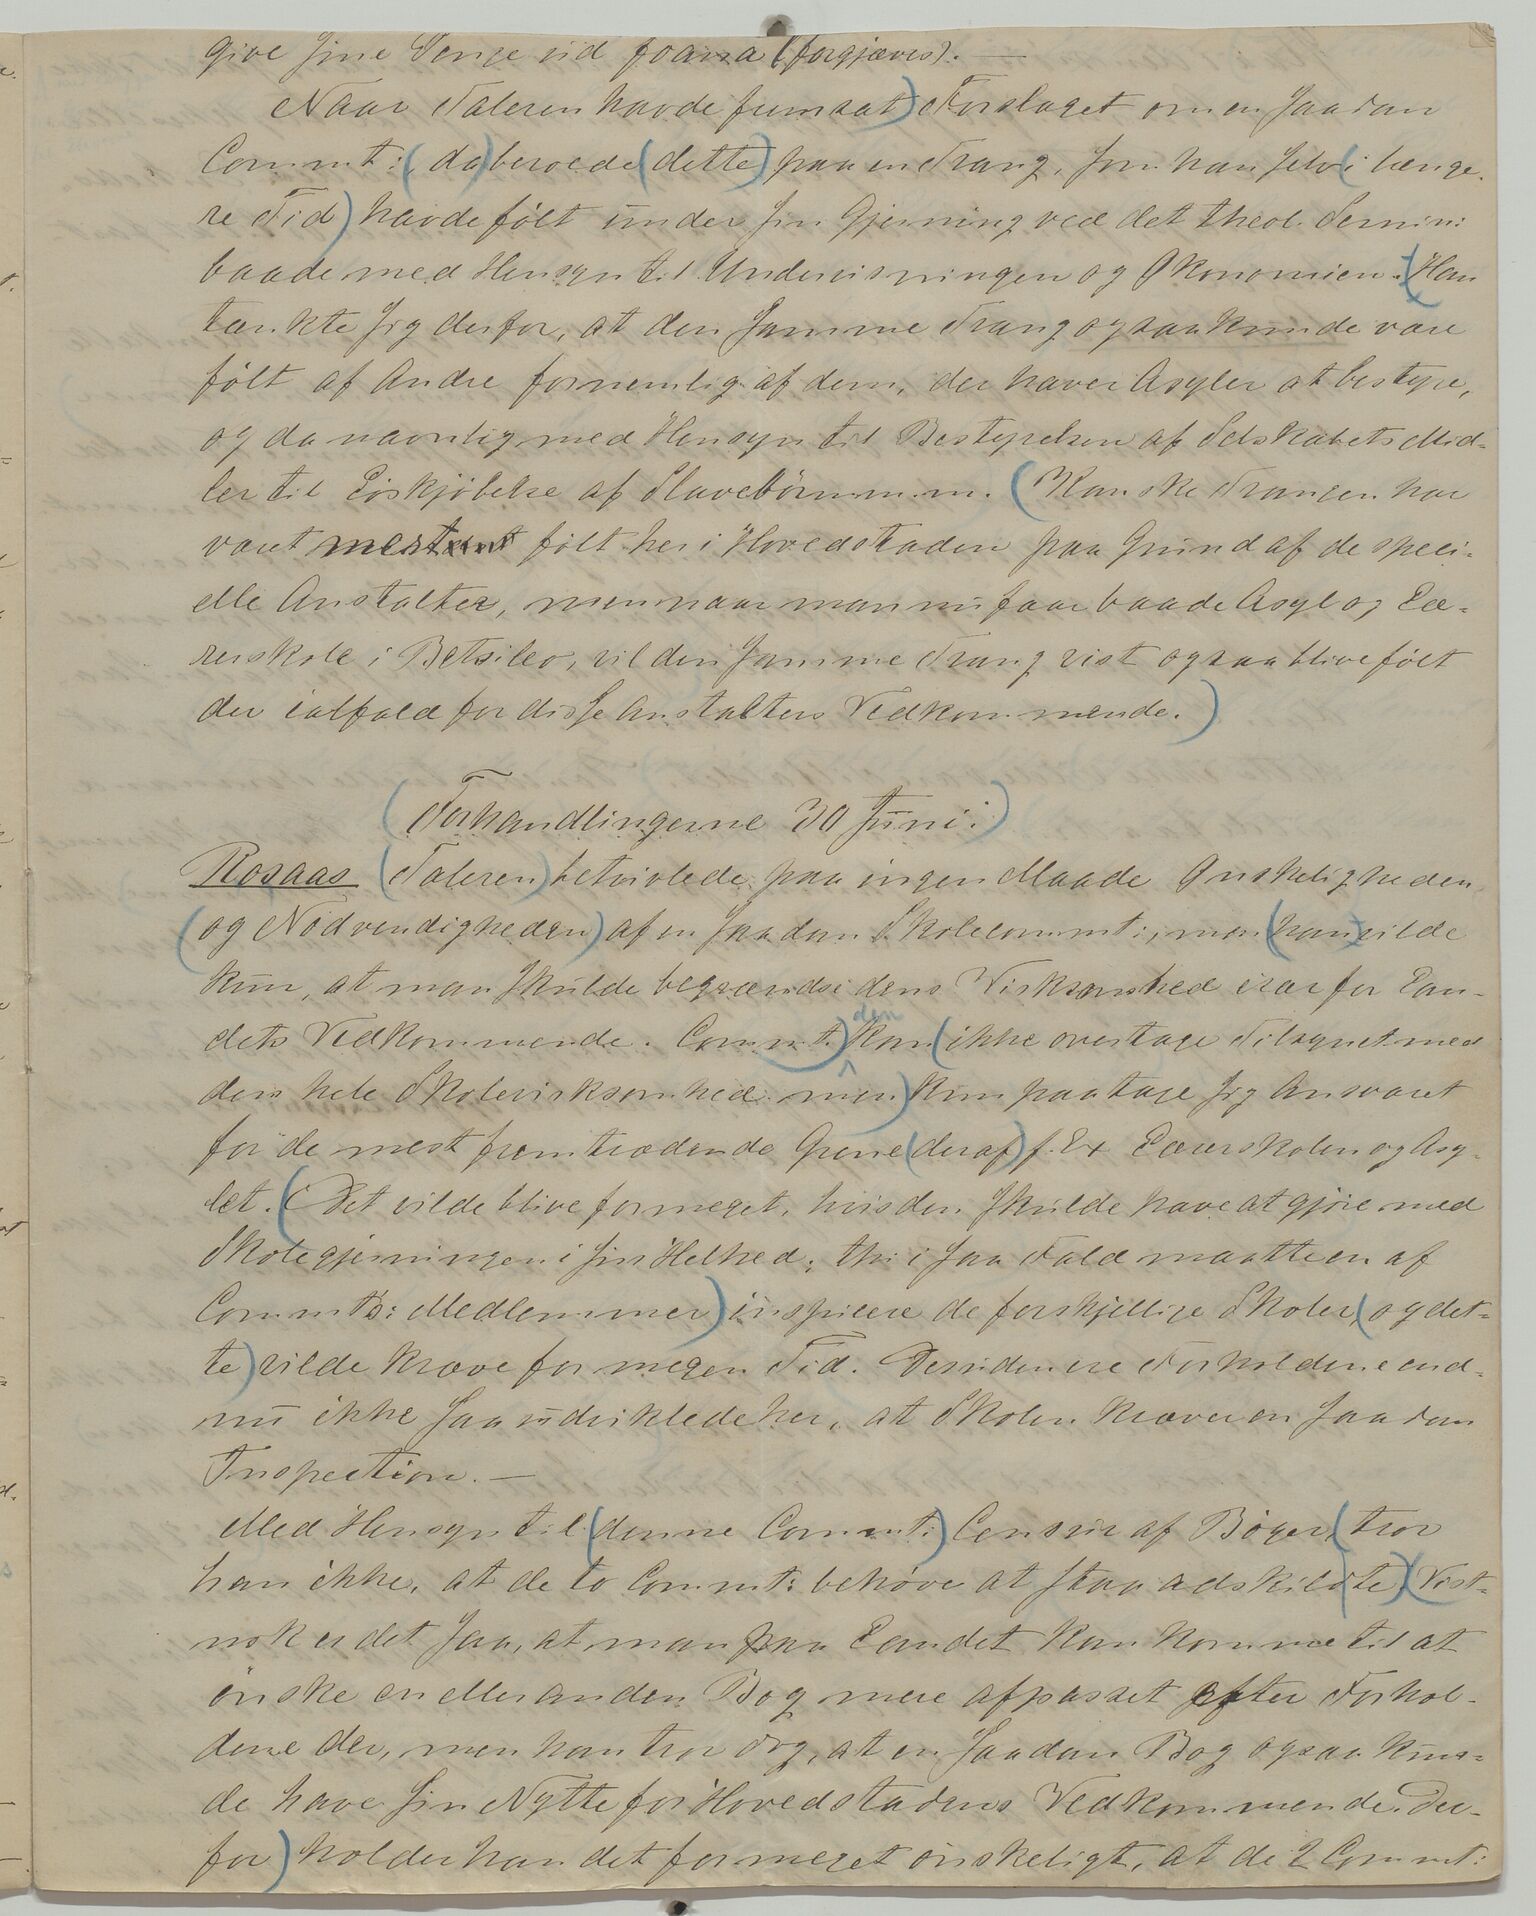 give sine Penge ud foana (forgjæves). —
Naar Taleren havde fremsat) Forslaget om en saadan
Commt: (da) beroede (dette) paa en Trang, som han selv (i længe-
re Tid) havde følt under sin Gjerning ved det theol. Semin:
baade med Hensyn til Undervisningen og Økonomien. (Han
tænkte sig derfor, at den samme Trang ogsaa kunde være
følt af Andre fornemlig af dem, der haver Asyler at bestyre,
og da navnlig med Hensyn til Bestyrelsen af Selskabets Mid-
ler til Løskjøbelse af Slavebörnene. (Kanske Trangen har
været mest følt her i Hovedstaden paa Grund af de speci-
elle Anstalter, men naar man nu faar baade Asyl og Læ-
rerskole i Betsileo, vil den samme Trang vist ogsaa blive følt
der ialfald for disse Anstalters Vedkommende.)
(Forhandlingerne 30 Juni:)
Rosaas (Taleren) betvivlede paa ingen Maade Ønskeligheden
(og Nødvendigheden) af en saadan Skolecommt:, men (han) vilde
kun, at man skulde begrændse dens Virksomhed især for Lan-
dets Vedkommende. Commt:) den kan (ikke overtage Tilsynet med
den hele Skolevirksomhed men) kun paatage sig Ansvaret
for de mest fremtrædende Grene (deraf) f. Ex Lærerskolen og Asy-
let. (Det vilde blive formeget, hvis den skulde have at gjøre med
Skolegjerningen i sin Helhed; thi i saa Fald maatte en af
Commts: Medlemmer) inspicere de forskjellige Skoler, (og det-
te) vilde kræve for megen Tid. Desuden ere Forholdene end-
nu ikke saa udviklede her, at Skolen kræver en saadan
Inspection. —
Med Hensyn til (denne Commt:) Censur af Bøger, (tror
han ikke, at de to Commt: behøve at staa adskildte) (Vist-
nok er det saa, at man paa Landet kan komme til at
ønske en eller anden Bog mere afpasset efter Forhol-
dene der, men han tror dog, at en saadan Bog ogsaa kun-
de have sin Nytte for Hovedstadens Vedkommende. Der-
for) holder han det for meget ønskeligt, at de 2 Commt: